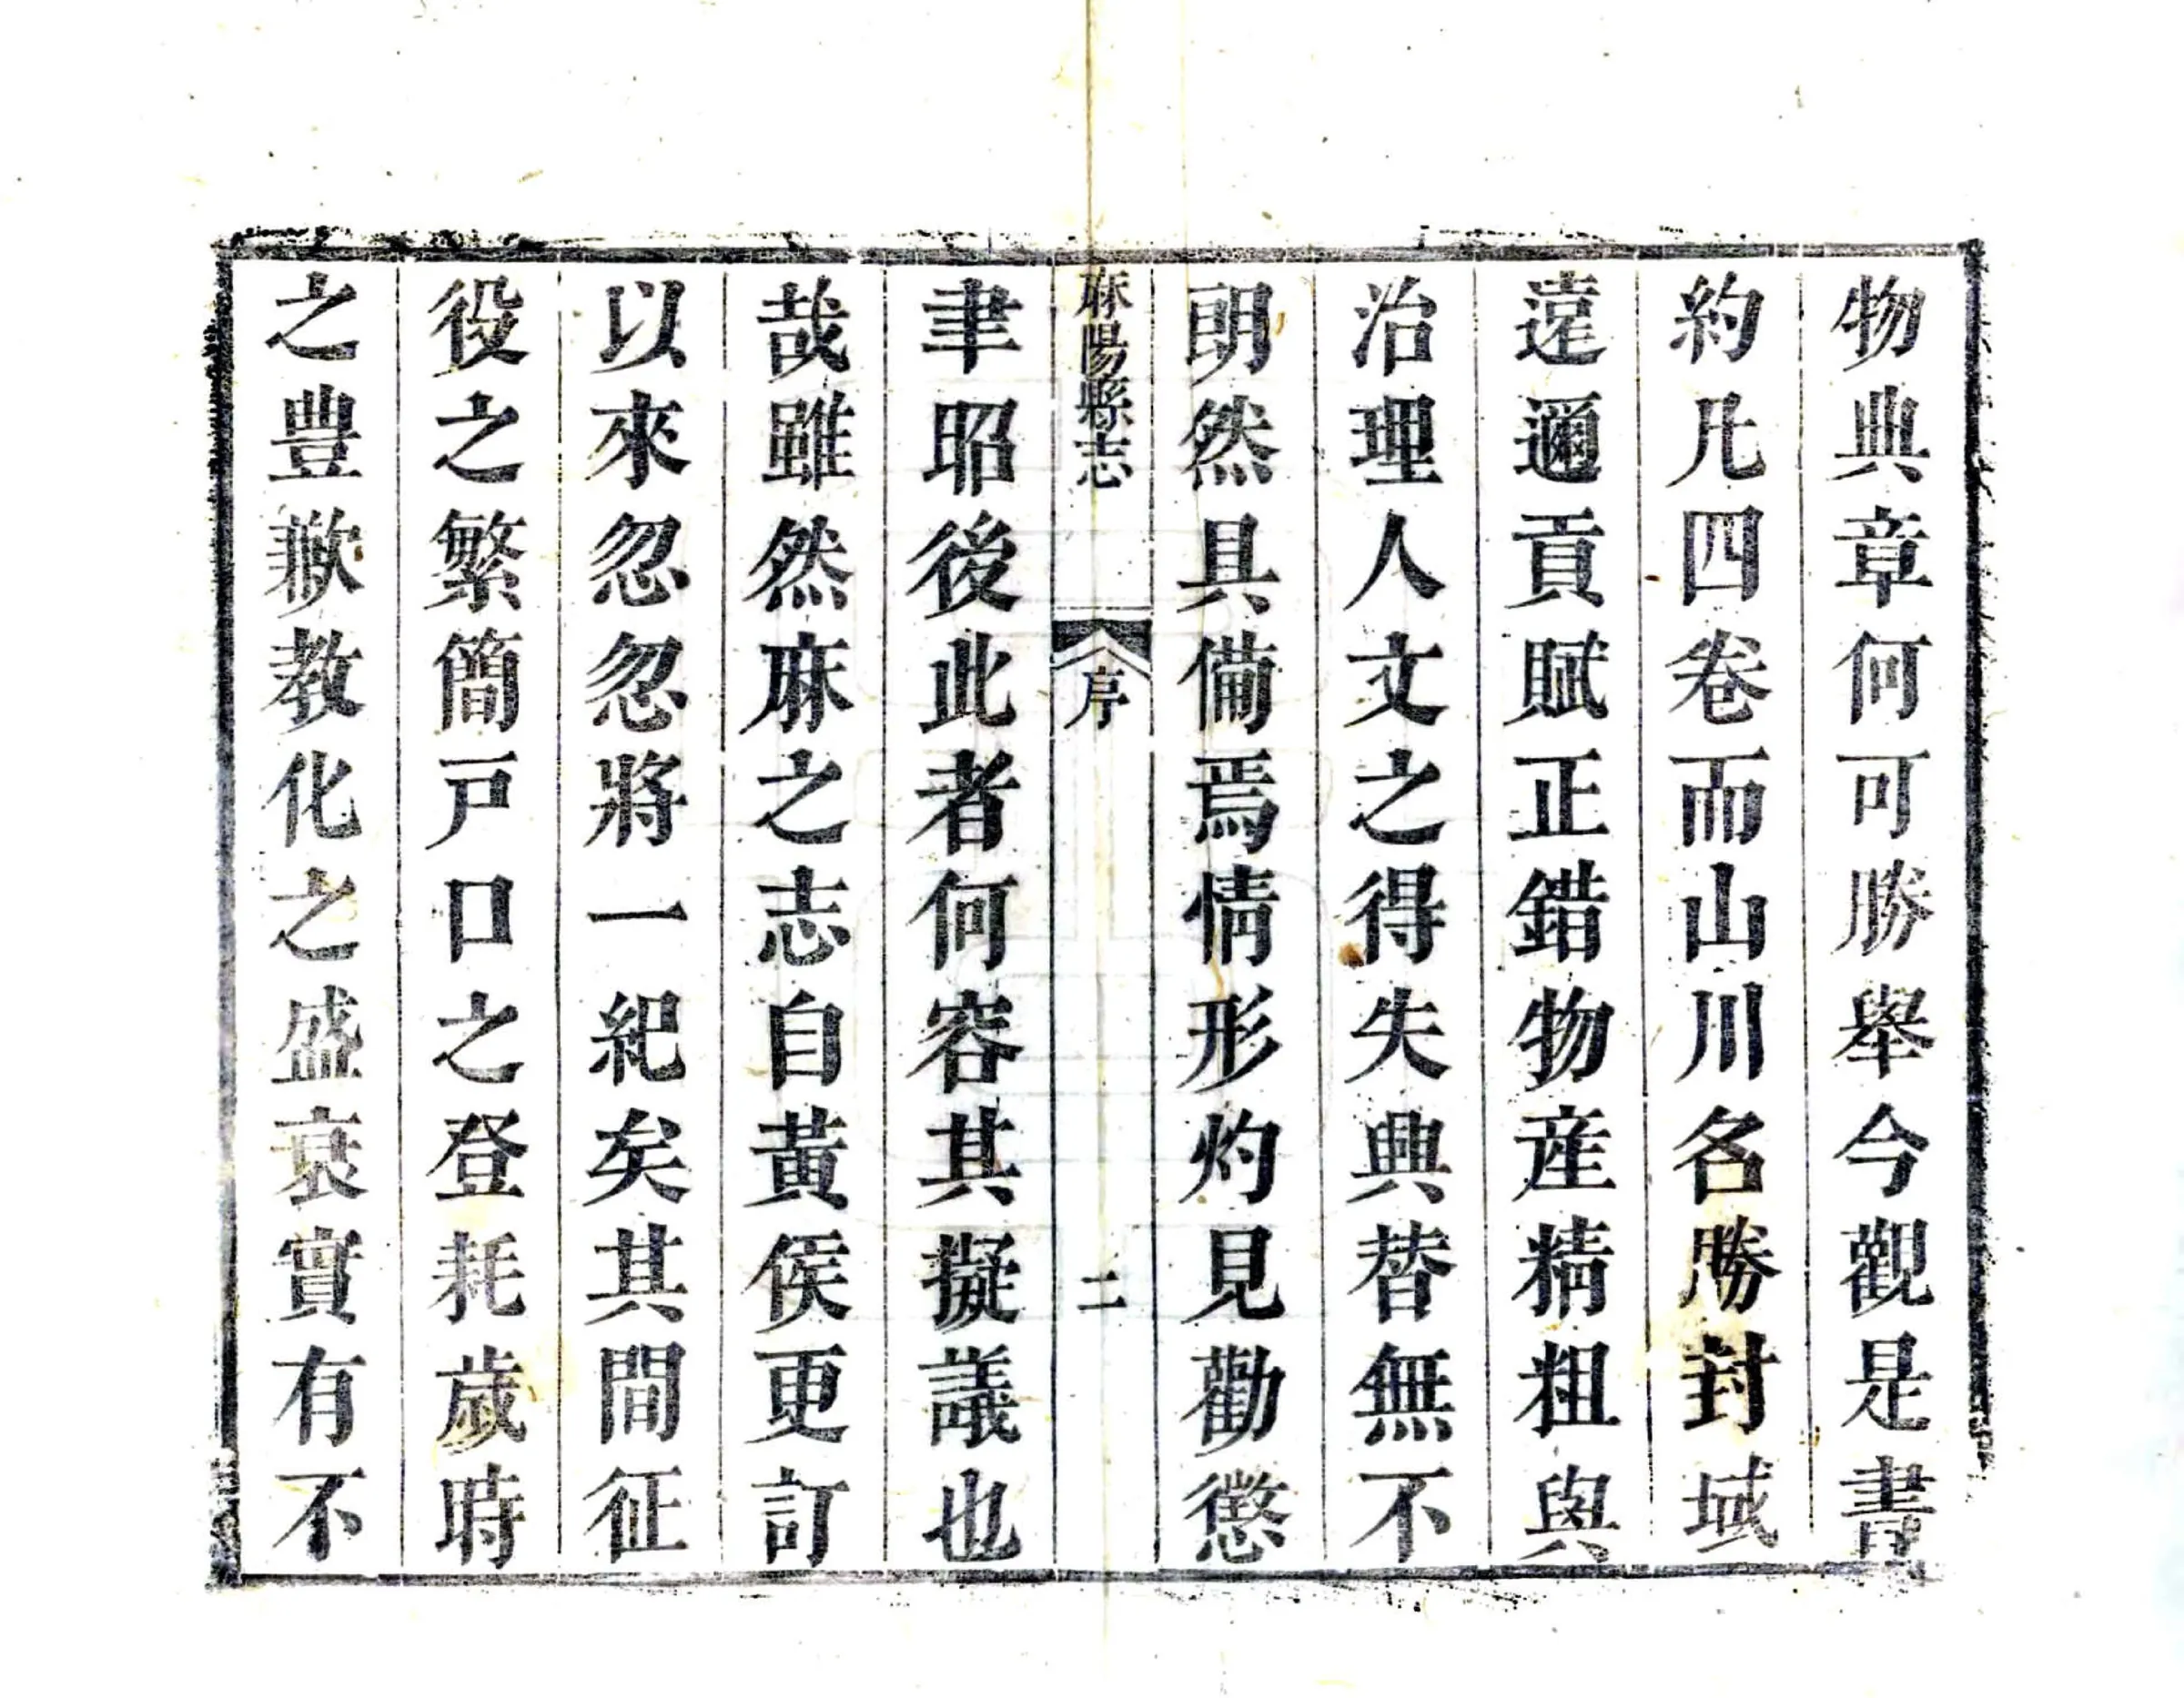 物典章何可勝舉今觀是書
約凡四卷而山川名勝封域
遠邇貢賦正錯物産精粗與
治理人文之得失興替無不
朗然具備焉情形灼見勸懲
麻陽縣志 序 二
聿昭後此者何容其擬議也
哉雖然麻之志自黃侯更訂
以來忽忽將一紀矣其間征
役之繁簡戸口之登耗歲時
之豊歉教化之盛衰實有不